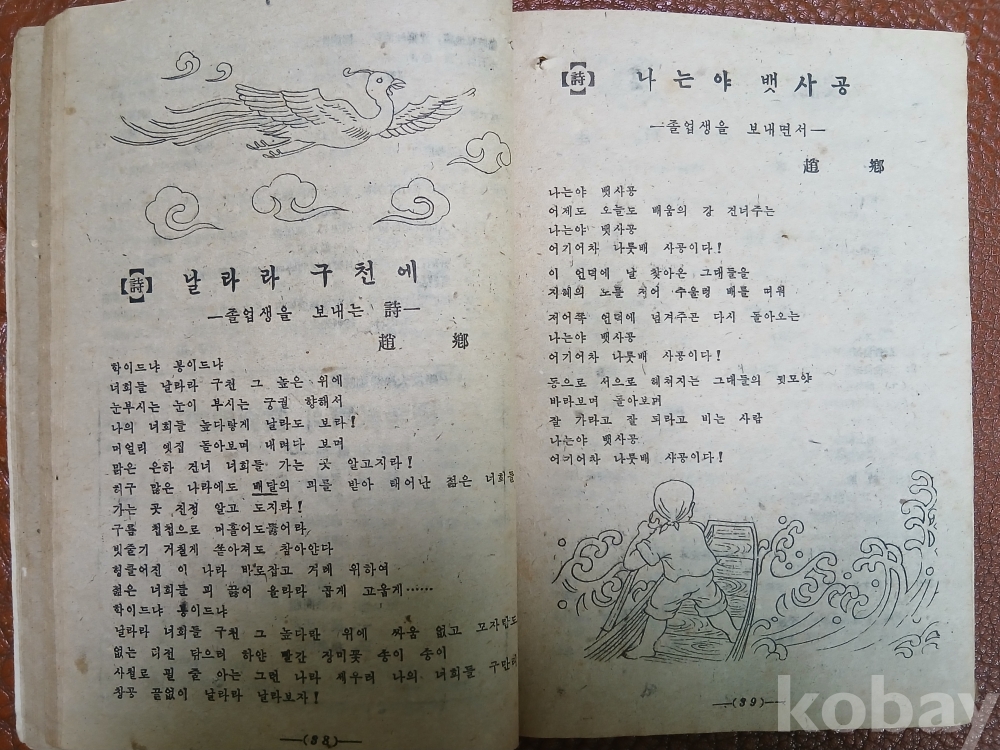 【詩】 날라라 구천에
—졸업생을 보내는 詩—
趙 鄕
학이드냐 봉이드냐
너희들 날라라 구천 그 높은 위에
눈부시는 눈이 부시는 궁궐 향해서
나의 너희들 높다랗게 날라도 보라!
머얼리 옛집 돌아보며 내려다 보며
맑은 은하 건너 너희들 가는 곳 알고지라!
허구 많은 나라에도 배달의 피를 받아 태어난 젊은 너희들
가는 곳 진정 알고 도지라!
구름 첩첩으로 머흘어도뚫어라
빗줄기 거칠게 쏟아져도 참아얀다
헝클어진 이 나라 바로잡고 겨레 위하여
젊은 너희들 피 끓어 올라라 곱게 고웁게……
학이드냐 봉이드냐
날라라 너희들 구천 그 높다란 위에 싸움 없고 모자람도
없는 터전 닦으러 하얀 빨간 장미꽃 송이 송이
사철로 필 줄 아는 그런 나라 세우러 나의 너희들 구만리
창공 끝없이 날라라 날라보자!
—(38)—
【詩】 나는야 뱃사공
—졸업생을 보내면서—
趙 鄕
나는야 뱃사공
어제도 오늘도 배움의 강 건너주는
나는야 뱃사공
어기어차 나룻배 사공이다!
이 언덕에 날 찾아온 그대들을
지혜의 노를 저어 추울렁 배를 띄워
저어쪽 언덕에 넘겨주곤 다시 돌아오는
나는야 뱃사공
어기어차 나룻배 사공이다!
동으로 서으로 헤쳐지는 그대들의 뒷모양
바라보며 돌아보며
잘 가라고 잘 되라고 비는 사람
나는야 뱃사공
어기어차 나룻배 사공이다!
—(39)—
kobay